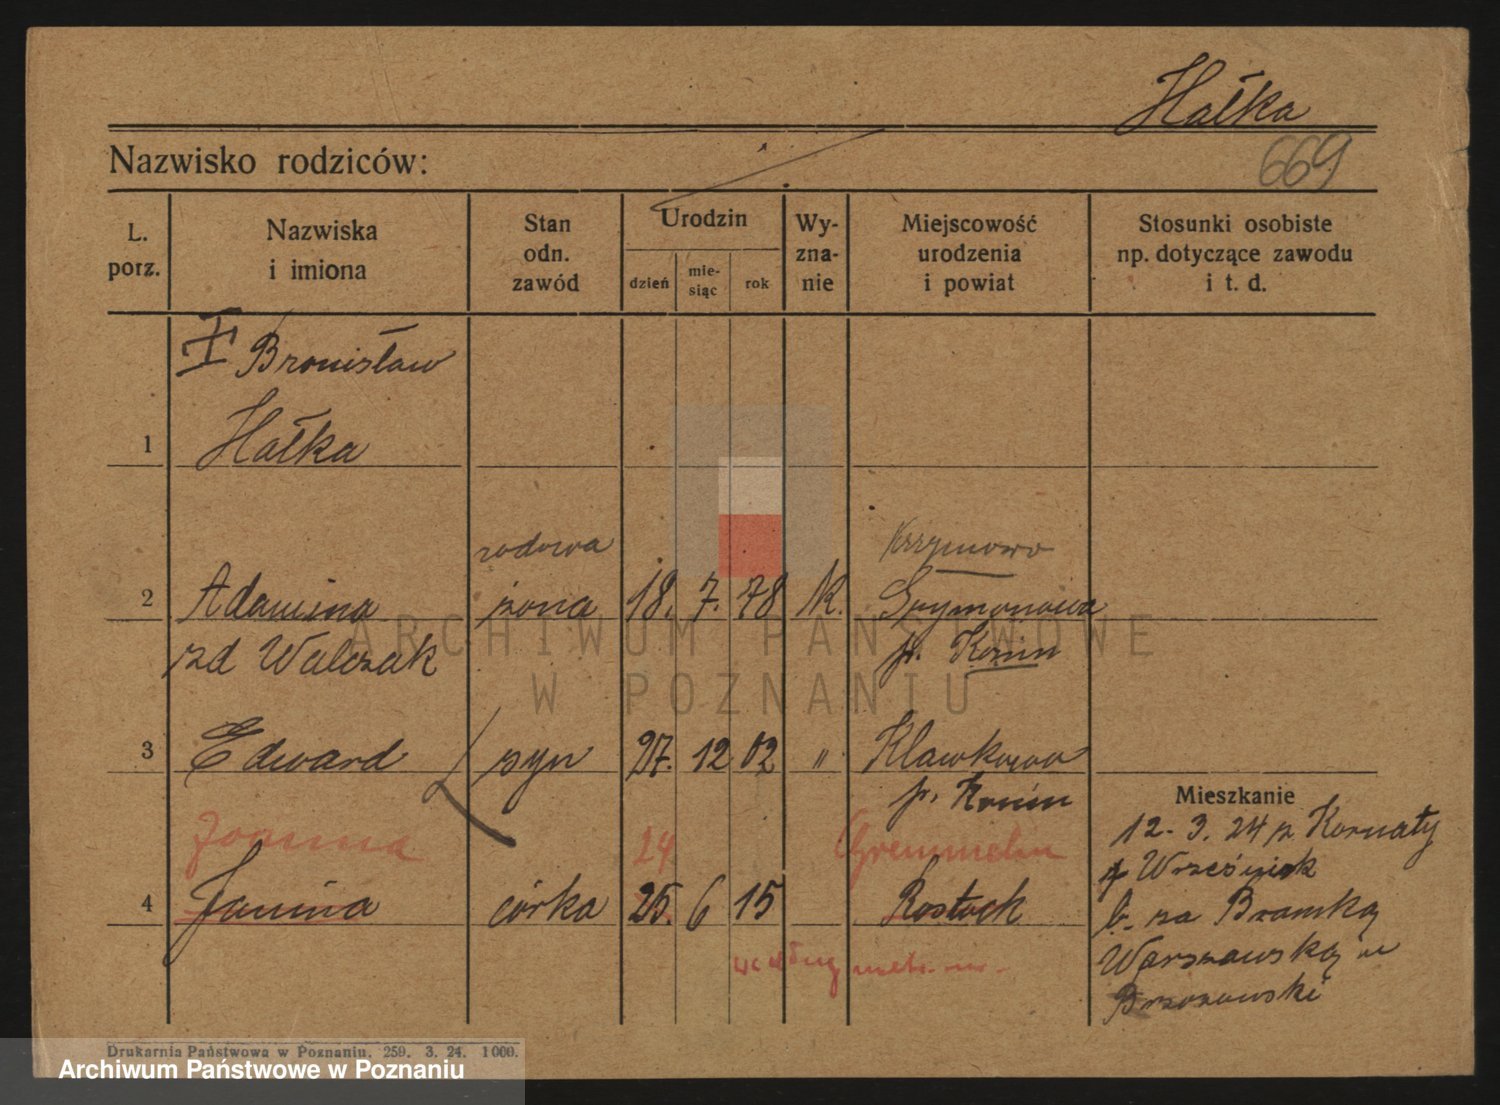 Hałka
Nazwisko rodziców:
669
L. porz.
Nazwiska i imiona
Stan odn. zawód
Urodzin
dzień
mie-siąc
rok
Wy-zna-nie
Miejscowość urodzenia i powiat
Stosunki osobiste np. dotyczące zawodu i t. d.
Bronisław
1 Hałka
wdowa Krzymowo
2 Adamina żona 18. 7. 78 K. Szymonowa
zd Walczak p. Konin
3 Edward syn 27. 12 02 " Klawkowo
p. Konin
Mieszkanie
Joanna 24 Gremmelin
12. 3. 24 z Kornaty
p Wrześniak
4 Janina córka 25. 6 15 Rostock
b. za Bramką
według metr.
Warszawską
Brzozowski
ARCHIWUM PAŃSTWOWE
W POZNANIU
Drukarnia Państwowa w Poznaniu. 259. 3. 24. 1000.
Archiwum Państwowe w Poznaniu